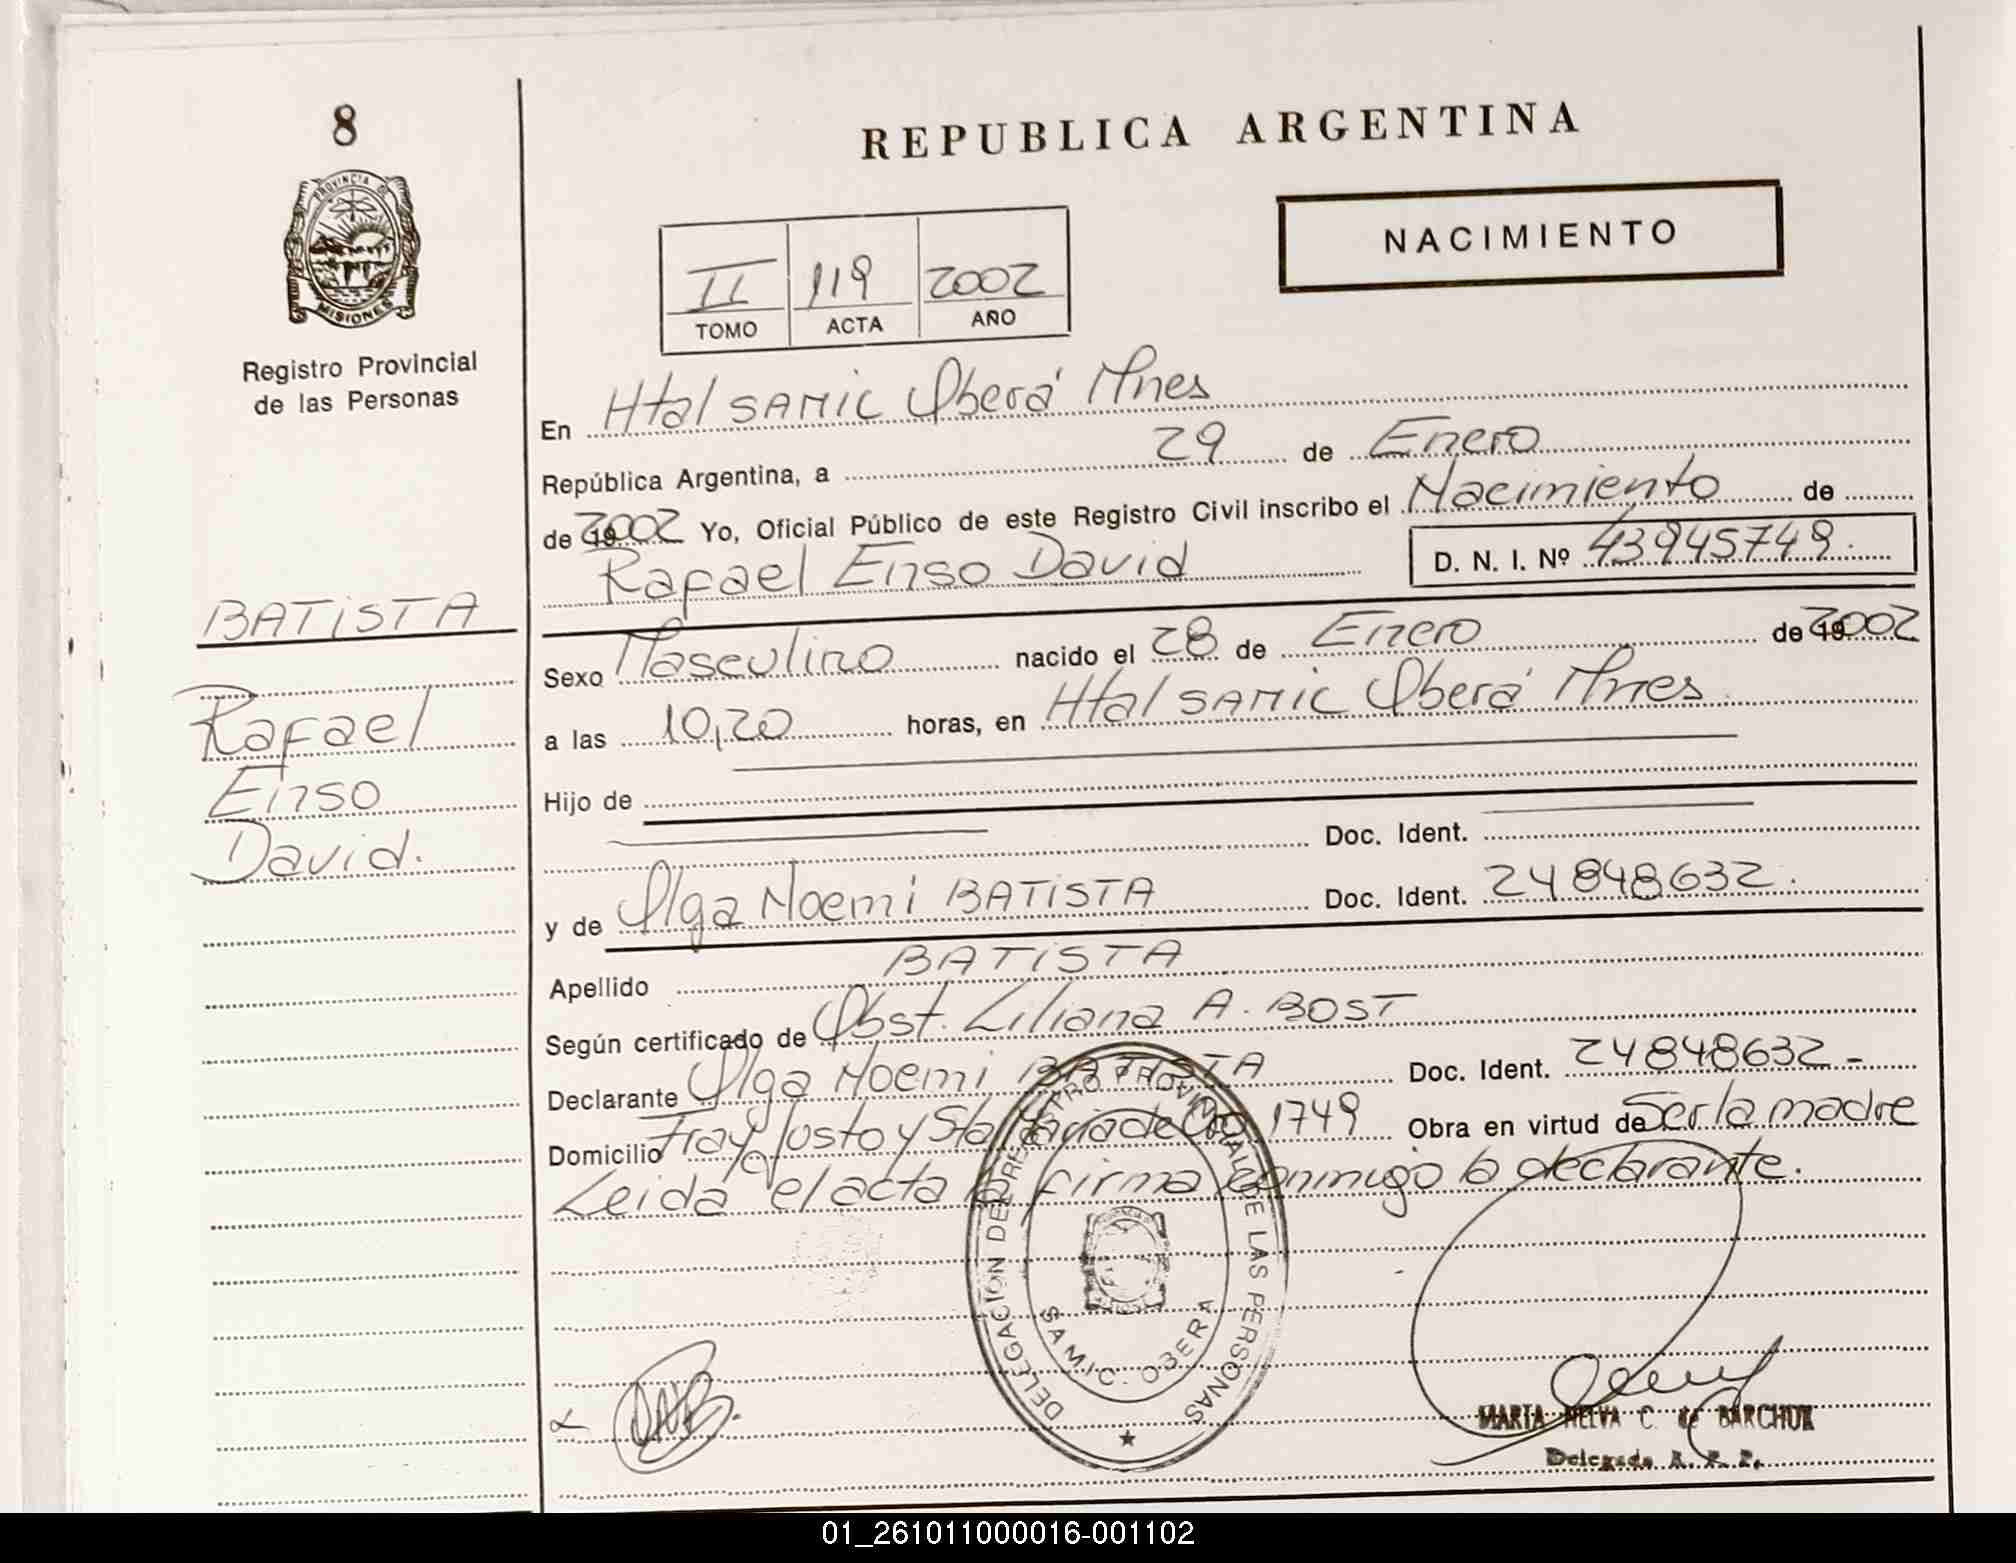 8
REPUBLICA ARGENTINA
PROVINCIA DE
MISIONES
Registro Provincial
de las Personas
NACIMIENTO
II 119 2002
TOMO ACTA AÑO
En Htal SAMIC Oberá Mnes
República Argentina, a 29 de Enero
de 2002 Yo, Oficial Público de este Registro Civil inscribo el Nacimiento de
Rafael Enso David D. N. I. Nº 43945749.
BATISTA
Rafael
Enso
David.
Sexo Masculino nacido el 28 de Enero de 2002
a las 10,20 horas, en Htal SAMIC Oberá Mnes
Hijo de
Doc. Ident.
y de Olga Noemi BATISTA Doc. Ident. 24848632.
Apellido BATISTA
Según certificado de Obst. Liliana A. BOST
Declarante Olga Noemi BATISTA Doc. Ident. 24848632-
Domicilio Fray Justo y Sta María de Oro 1749 Obra en virtud de Ser la madre
Leida el acta la firma conmigo la declarante.
DELEGACION DEL REGISTRO PROVINCIAL DE LAS PERSONAS
SAMIC. OBERA
MARIA NELVA C. de BARCHUK
Delegada R. P. P.
01_261011000016-001102